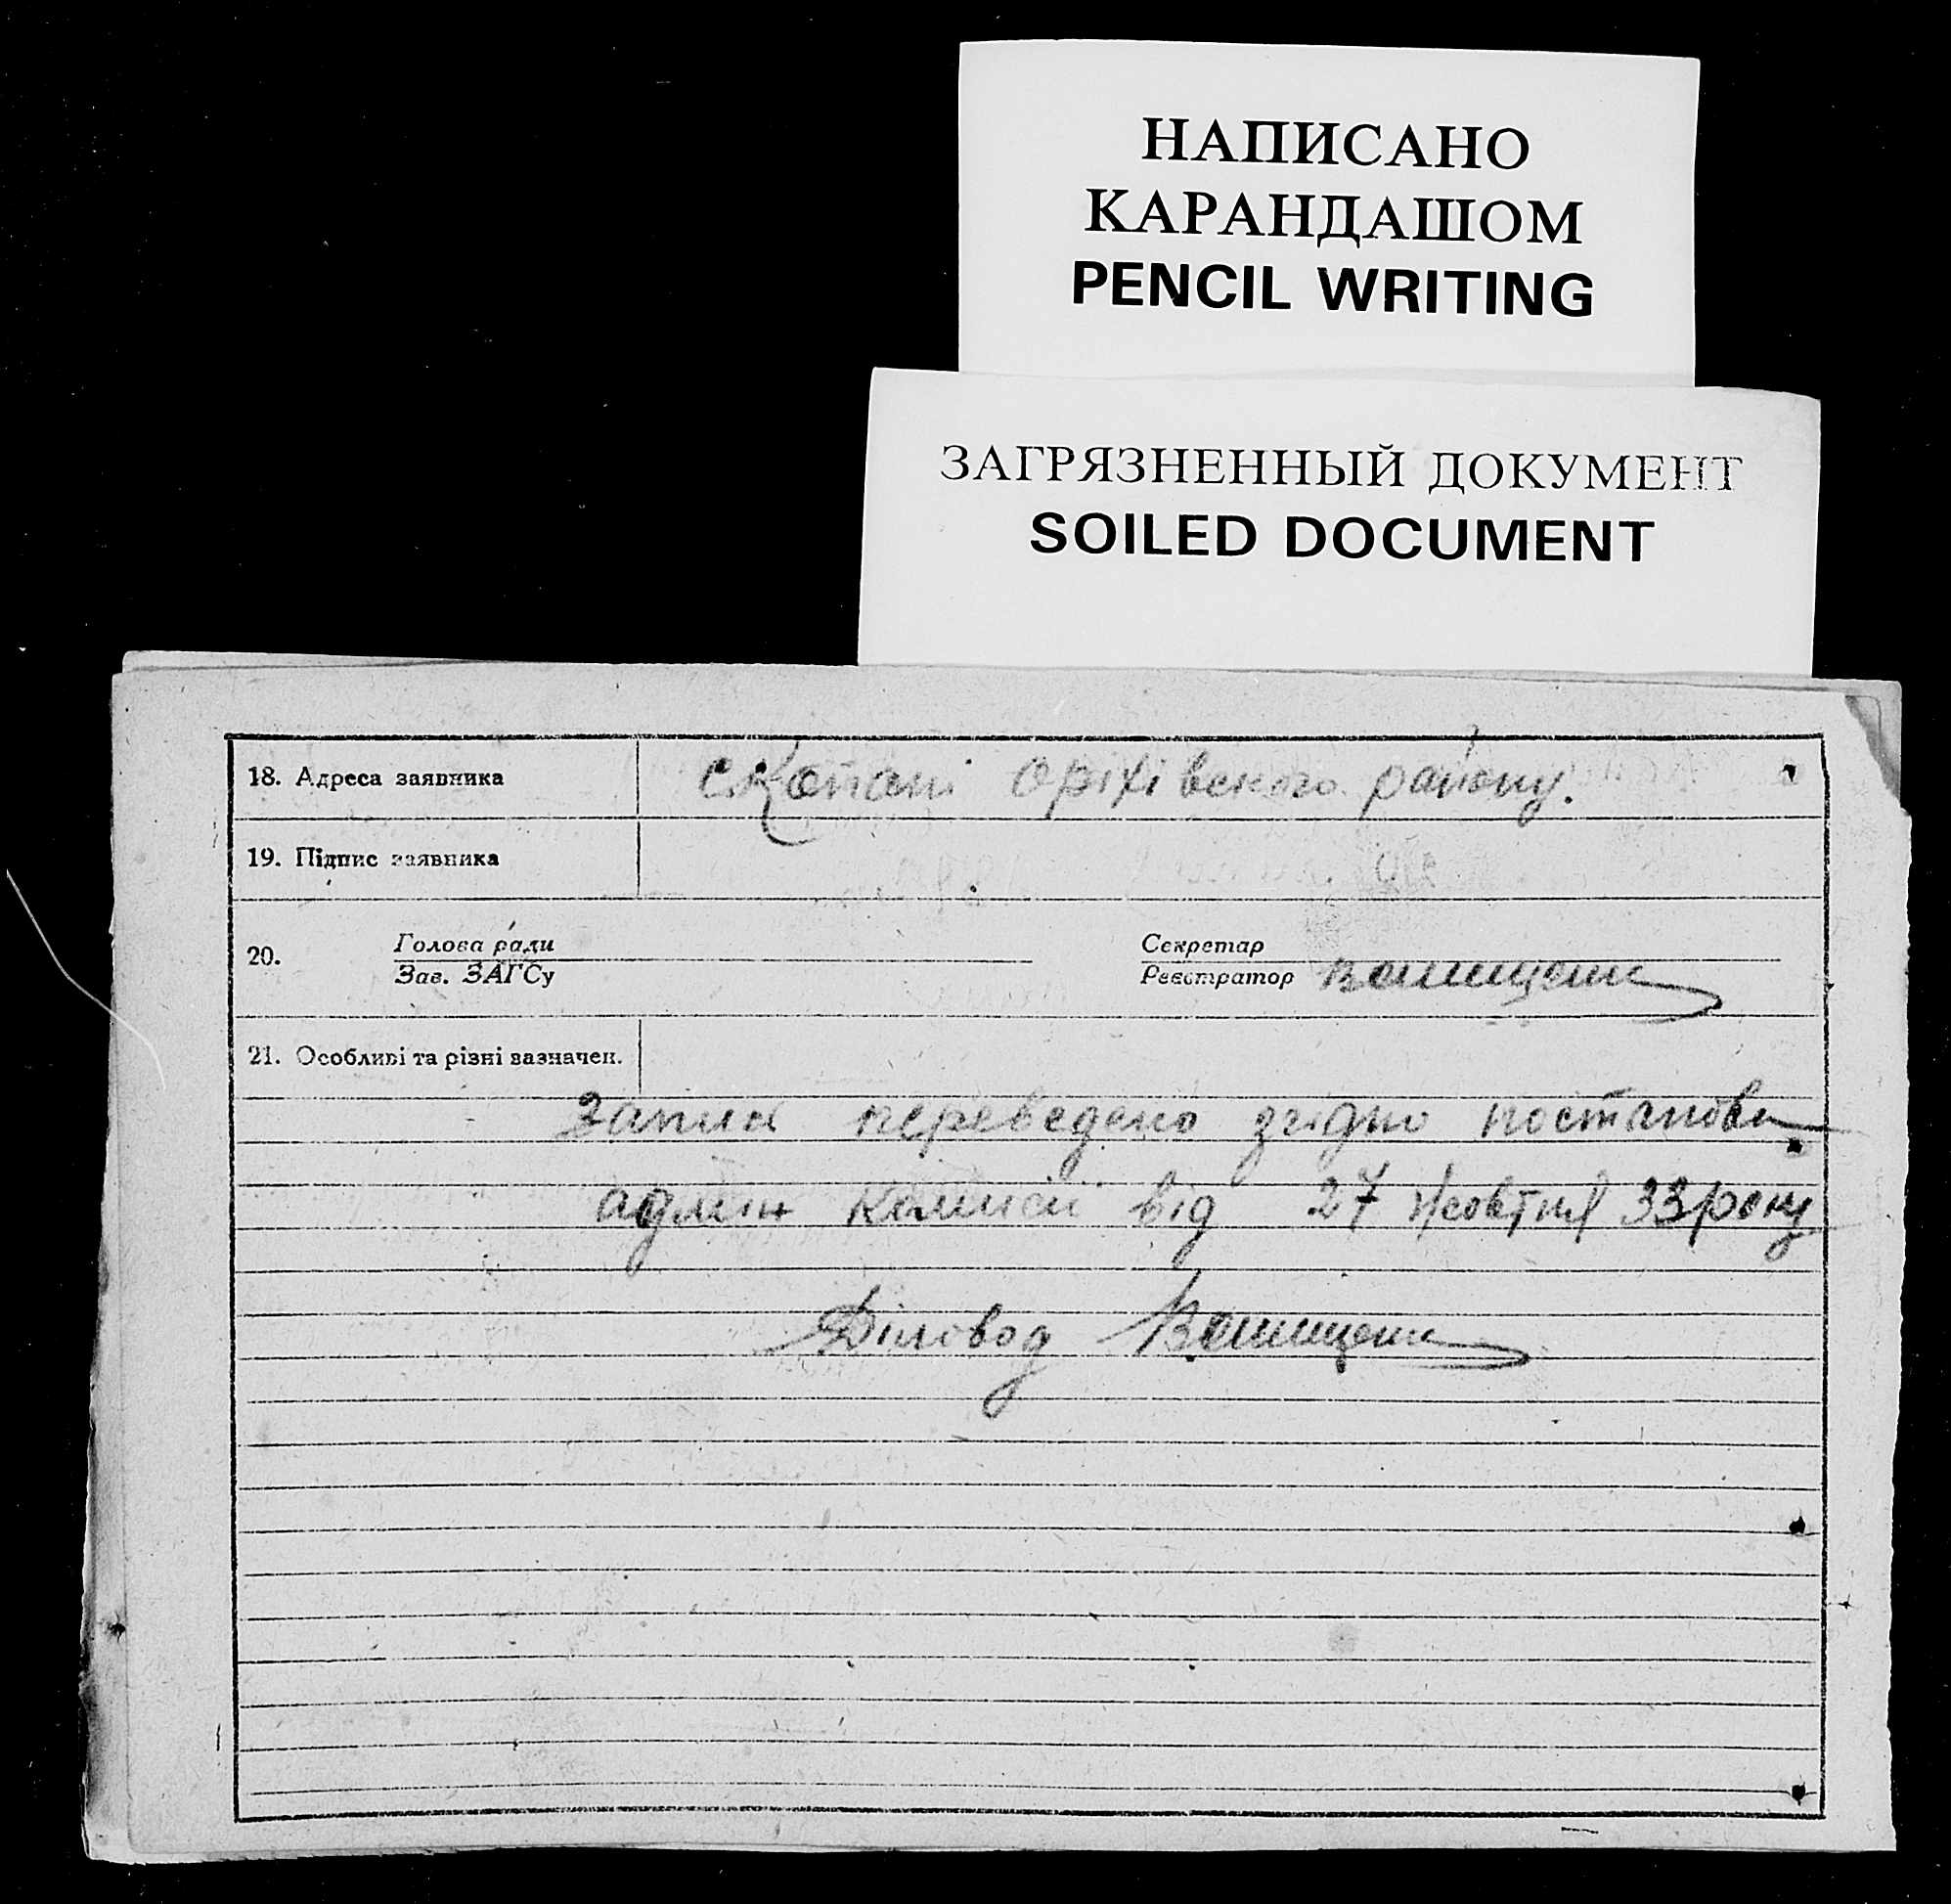 НАПИСАНО
КАРАНДАШОМ
PENCIL WRITING
ЗАГРЯЗНЕННЫЙ ДОКУМЕНТ
SOILED DOCUMENT
18. Адреса заявника с Копані Оріхівського району.
19. Підпис заявника
20. Голова ради Секретар
Зав. ЗАГСу Реєстратор
21. Особливі та різні зазначен.
Запись переведено згідно постанови
адмін комисіі від 27 жовтня 33 року
Діловод